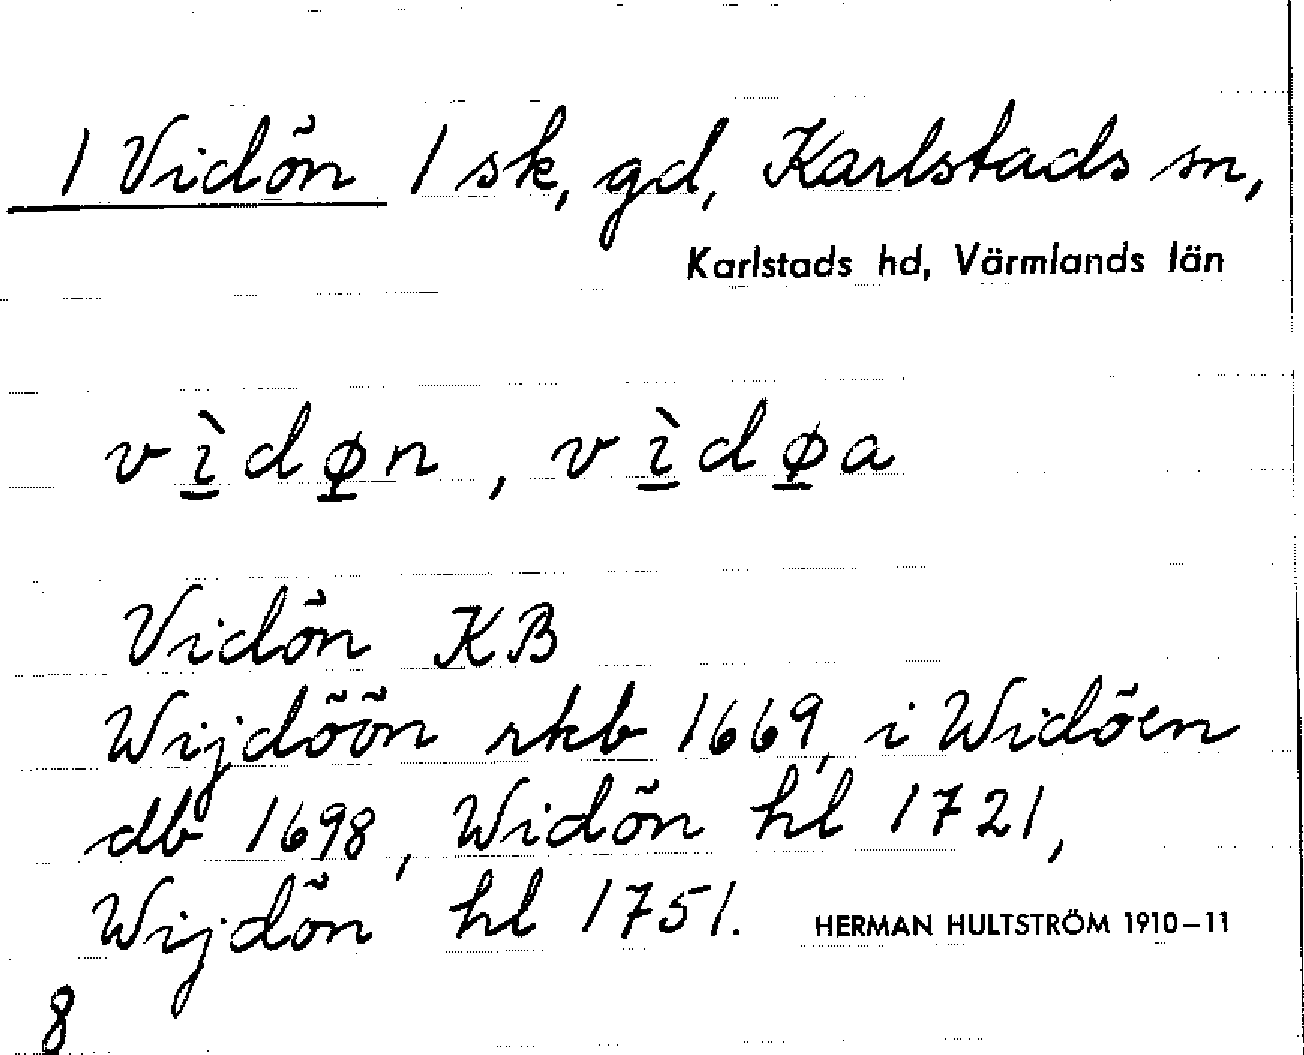 1 Vidön 1 sk, gd, Karlstads sn,
Karlstads hd, Värmlands län
vìdøn, vìdøa
Vidön KB
Wijdöön rkb 1669, i Widöen
db 1698, Widön hl 1721,
Wijdön hl 1751. HERMAN HULTSTRÖM 1910–11
8